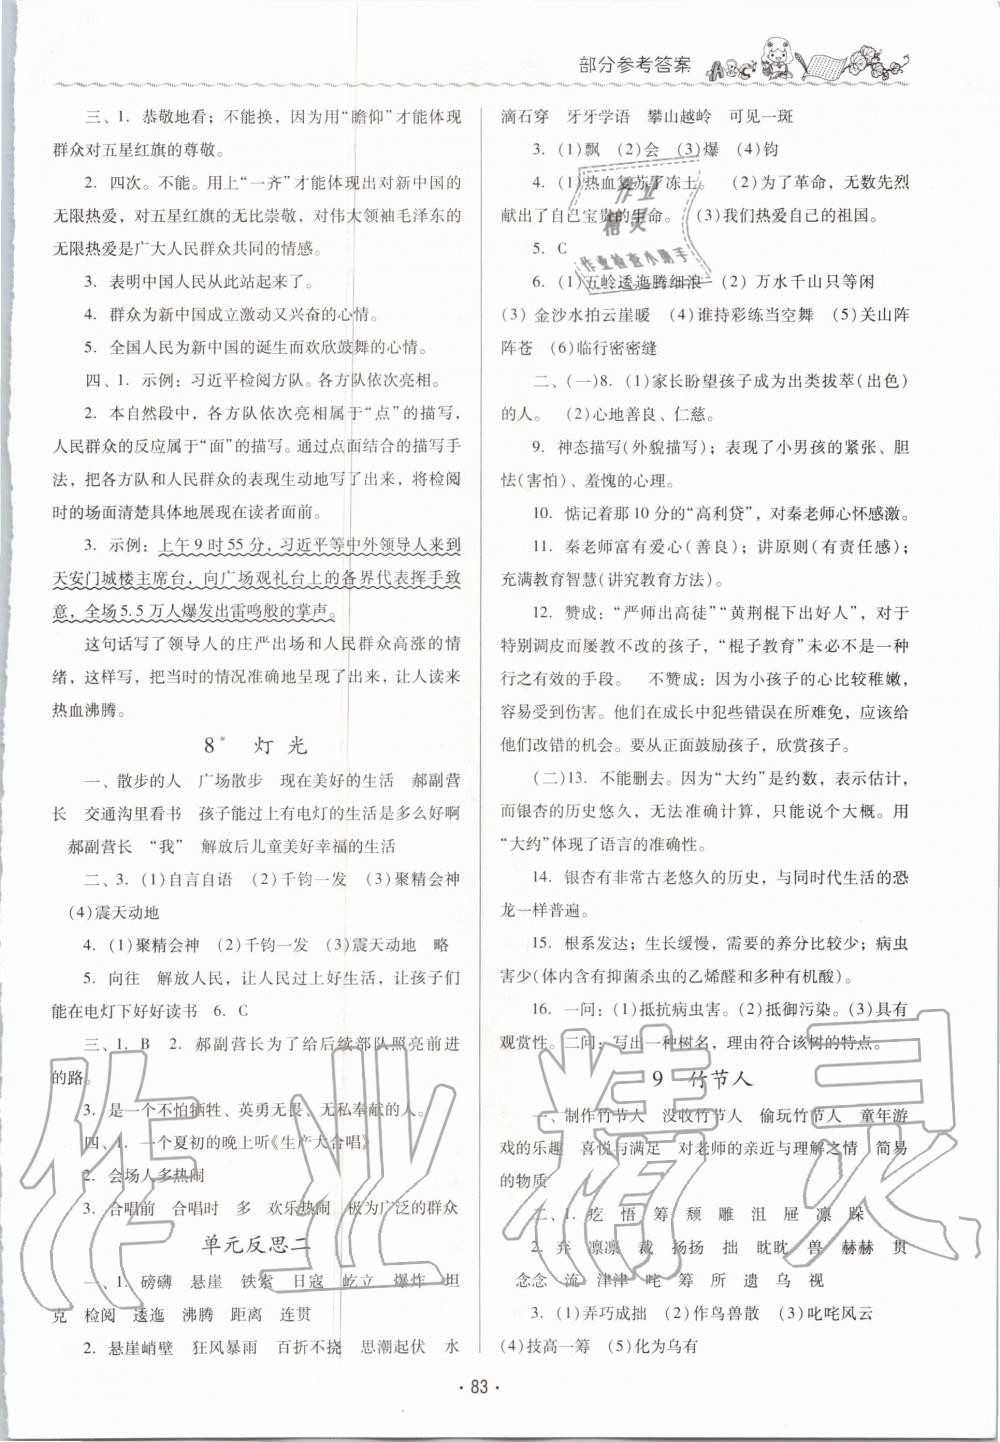 部分参考答案
ABC
三、1. 恭敬地看；不能换，因为用“瞻仰”才能体现
群众对五星红旗的尊敬。
2. 四次。不能。用上“一齐”才能体现出对新中国的
无限热爱，对五星红旗的无比崇敬，对伟大领袖毛泽东的
无限热爱是广大人民群众共同的情感。
3. 表明中国人民从此站起来了。
4. 群众为新中国成立激动又兴奋的心情。
5. 全国人民为新中国的诞生而欢欣鼓舞的心情。
四、1. 示例：习近平检阅方队。各方队依次亮相。
2. 本自然段中，各方队依次亮相属于“点”的描写，
人民群众的反应属于“面”的描写。通过点面结合的描写手
法，把各方队和人民群众的表现生动地写了出来，将检阅
时的场面清楚具体地展现在读者面前。
3. 示例：上午9时55分，习近平等中外领导人来到
天安门城楼主席台，向广场观礼台上的各界代表挥手致
意，全场5.5万人爆发出雷鸣般的掌声。
这句话写了领导人的庄严出场和人民群众高涨的情
绪，这样写，把当时的情况准确地呈现了出来，让人读来
热血沸腾。
8* 灯光
一、散步的人 广场散步 现在美好的生活 郝副营
长 交通沟里看书 孩子能过上有电灯的生活是多么好啊
郝副营长 “我” 解放后儿童美好幸福的生活
二、3. (1)自言自语 (2)千钧一发 (3)聚精会神
(4)震天动地
4. (1)聚精会神 (2)千钧一发 (3)震天动地 略
5. 向往 解放人民，让人民过上好生活，让孩子们
能在电灯下好好读书 6. C
三、1. B 2. 郝副营长为了给后续部队照亮前进
的路。
3. 是一个不怕牺牲、英勇无畏、无私奉献的人。
四、1. 一个夏初的晚上听《生产大合唱》
2. 会场人多热闹
3. 合唱前 合唱时 多 欢乐热闹 极为广泛的群众
单元反思二
一、1. 磅礴 悬崖 铁索 日寇 屹立 爆炸 坦
克 检阅 逶迤 沸腾 距离 连贯
2. 悬崖峭壁 狂风暴雨 百折不挠 思潮起伏 水
滴石穿 牙牙学语 攀山越岭 可见一斑
3. (1)飘 (2)会 (3)爆 (4)钧
4. (1)热血复苏了冻土。 (2)为了革命，无数先烈
献出了自己宝贵的生命。 (3)我们热爱自己的祖国。
5. C
6. (1)五岭逶迤腾细浪 (2)万水千山只等闲
(3)金沙水拍云崖暖 (4)谁持彩练当空舞 (5)关山阵
阵苍 (6)临行密密缝
二、(一)8. (1)家长盼望孩子成为出类拔萃(出色)
的人。 (2)心地善良、仁慈。
9. 神态描写(外貌描写)；表现了小男孩的紧张、胆
怯(害怕)、羞愧的心理。
10. 惦记着那10分的“高利贷”，对秦老师心怀感激。
11. 秦老师富有爱心(善良)；讲原则(有责任感)；
充满教育智慧(讲究教育方法)。
12. 赞成：“严师出高徒”“黄荆棍下出好人”，对于
特别调皮而屡教不改的孩子，“棍子教育”未必不是一种
行之有效的手段。 不赞成：因为小孩子的心比较稚嫩，
容易受到伤害。他们在成长中犯些错误在所难免，应该给
他们改错的机会。要从正面鼓励孩子，欣赏孩子。
(二)13. 不能删去。因为“大约”是约数，表示估计，
而银杏的历史悠久，无法准确计算，只能说个大概。用
“大约”体现了语言的准确性。
14. 银杏有非常古老悠久的历史，与同时代生活的恐
龙一样普遍。
15. 根系发达；生长缓慢，需要的养分比较少；病虫
害少(体内含有抑菌杀虫的乙烯醛和多种有机酸)。
16. 一问：(1)抵抗病虫害。(2)抵御污染。(3)具有
观赏性。二问：写出一种树名，理由符合该树的特点。
9 竹节人
一、制作竹节人 没收竹节人 偷玩竹节人 童年游
戏的乐趣 喜悦与满足 对老师的亲近与理解之情 简易
的物质
二、1. 疙 悟 筹 颓 雕 沮 屉 凛 跺
2. 弃 凛凛 裁 扬扬 拙 眈眈 兽 赫赫 贯
念念 流 津津 咤 筹 所 遗 乌 视
3. (1)弄巧成拙 (2)作鸟兽散 (3)叱咤风云
(4)技高一筹 (5)化为乌有
·83·
作业
精灵
作业检查小助手
作业精灵